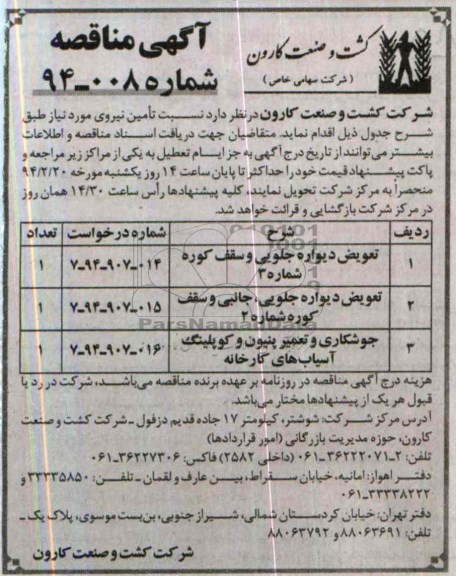 آگهی مناقصه
شماره ۰۰۸-۹۴
کشت و صنعت کارون
( شرکت سهامی خاص )
شرکت کشت و صنعت کارون در نظر دارد نسبت تأمین نیروی مورد نیاز طبق
شرح جدول ذیل اقدام نماید. متقاضیان جهت دریافت اسناد مناقصه و اطلاعات
بیشتر می‌توانند از تاریخ درج آگهی به جز ایام تعطیل به یکی از مراکز زیر مراجعه و
پاکت پیشنهاد قیمت خود را حداکثر تا پایان ساعت ۱۴ روز یکشنبه مورخه ۹۴/۲/۲۰
منحصراً به مرکز شرکت تحویل نمایند، کلیه پیشنهادها رأس ساعت ۱۴/۳۰ همان روز
در مرکز شرکت بازگشایی و قرائت خواهد شد.
ردیف شرح شماره درخواست تعداد
۱ تعویض دیواره جلویی و سقف کوره شماره ۳ ۰۱۴-۹۰۷-۹۴-۷ ۱
۲ تعویض دیواره جلویی، جانبی و سقف کوره شماره ۲ ۰۱۵-۹۰۷-۹۴-۷ ۱
۳ جوشکاری و تعمیر پنیون و کوپلینگ آسیاب‌های کارخانه ۰۱۶-۹۰۷-۹۴-۷ ۱
ParsNamadData
هزینه درج آگهی مناقصه در روزنامه بر عهده برنده مناقصه می‌باشد، شرکت در رد یا
قبول هر یک از پیشنهادها مختار می‌باشد.
آدرس مرکز شرکت: شوشتر، کیلومتر ۱۷ جاده قدیم دزفول - شرکت کشت و صنعت
کارون، حوزه مدیریت بازرگانی (امور قراردادها)
تلفن: ۲-۳۶۲۲۲۰۷۱-۰۶۱ (داخلی ۲۵۸۲) فاکس: ۳۶۲۲۷۳۰۶-۰۶۱
دفتر اهواز: امانیه، خیابان سقراط، بین عارف و لقمان - تلفن: ۳۳۳۳۵۸۵۰ و
۳۳۳۳۸۲۳۲-۰۶۱
دفتر تهران: خیابان کردستان شمالی، شیراز جنوبی، بن‌بست موسوی، پلاک یک -
تلفن: ۸۸۰۶۳۶۹۱ و ۸۸۰۶۳۷۹۲
شرکت کشت و صنعت کارون